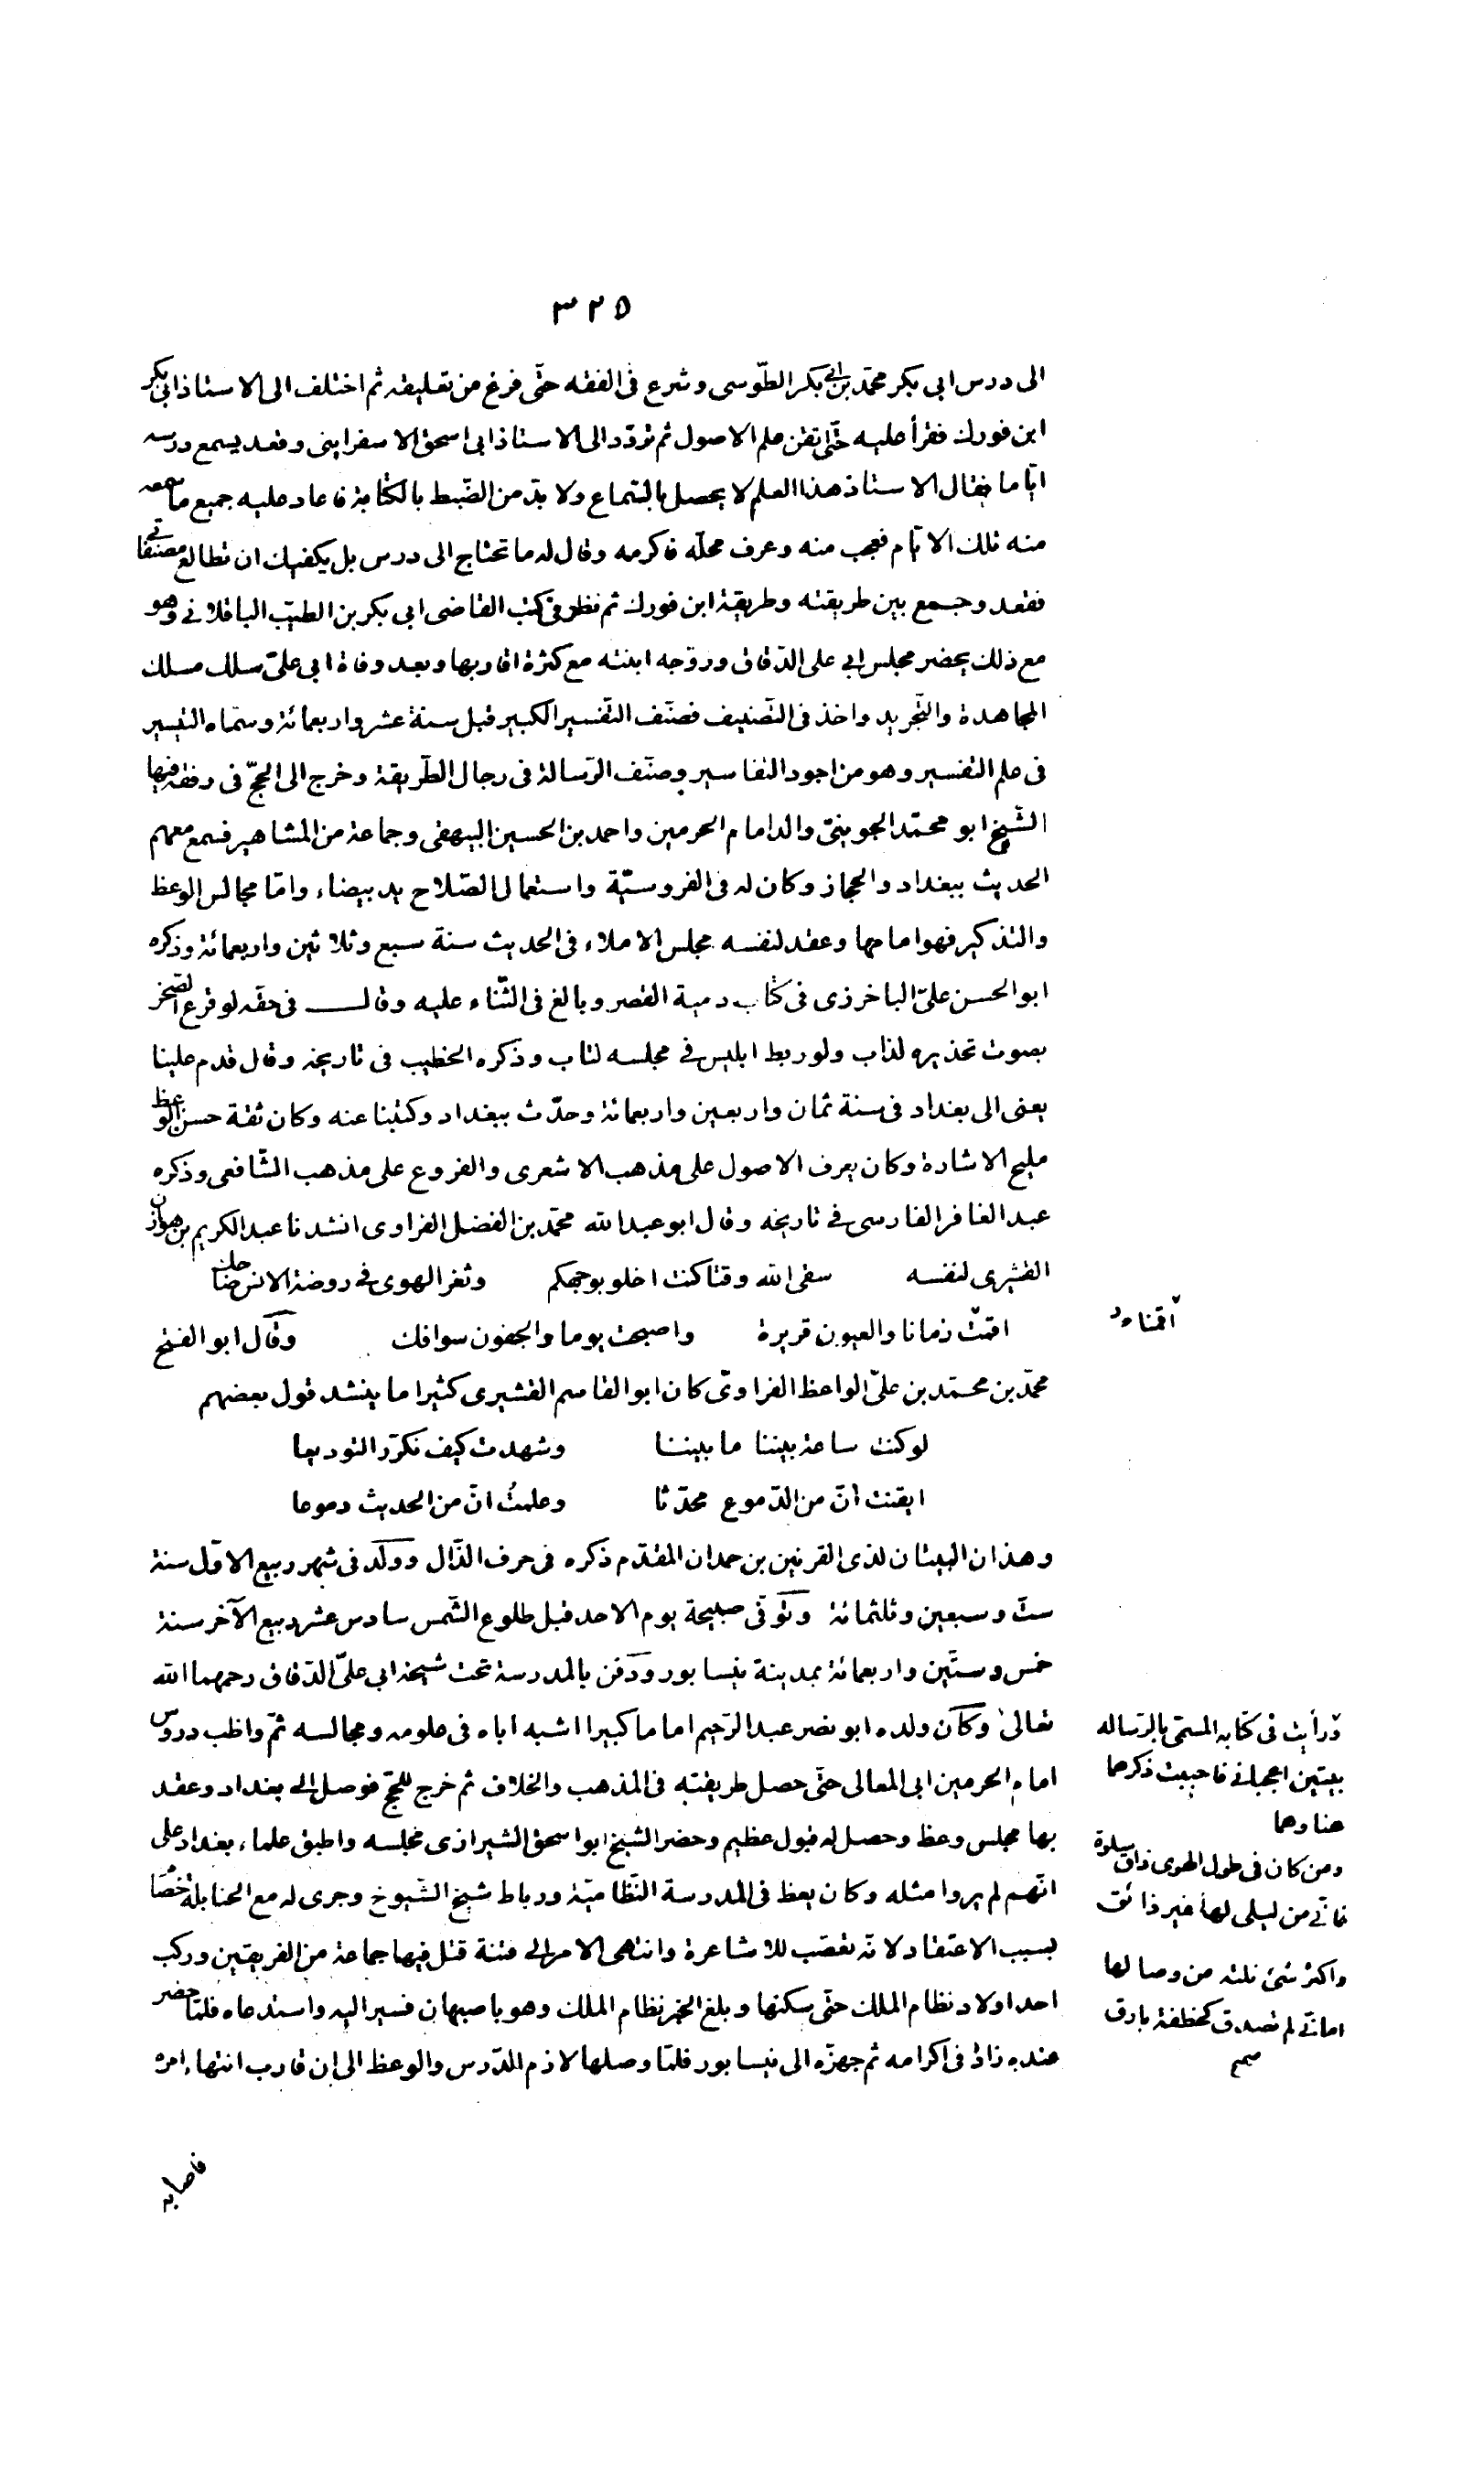 ٣٢٥
الى درس ابى بكر محمّد بن ابى بكر الطّوسى وشرع فى الفقه حتّى فرغ من تعليقه ثم اختلف الى الاستاذ ابى بكر
ابن فورك فقرأ عليه حتّى اتقن علم الاصول ثم تردّد الى الاستاذ ابى اسحق الاسفراينى وقعد يسمع درسه
ايّاما فقال الاستاذ هذا العلم لا يحصل بالسّماع ولا بدّ من الضّبط بالكتابة فاعاد عليه جميع ما سمعه
منه تلك الايّام فعجب منه وعرف محلّه فاكرمه وقال له ما تحتاج الى درس بل يكفيك ان تطالع مصنّفاتى
فقعد وجمع بين طريقته وطريقة ابن فورك ثم نظر فى كتب القاضى ابى بكر بن الطيّب الباقلانى وهو
مع ذلك يحضر مجلس ابى على الدّقاق وزوّجه ابنته مع كثرة اقاربها وبعد وفاة ابى علىّ سلك مسلك
المجاهدة والتّجريد واخذ فى التّصنيف فصنّف التّفسير الكبير قبل سنة عشر واربعمائة وسمّاه التيسير
فى علم التفسير وهو من اجود التفاسير وصنّف الرّسالة فى رجال الطّريقة وخرج الى الحجّ فى رفقة فيها
الشّيخ ابو محمّد الجوينىّ والد امام الحرمين واحمد بن الحسين البيهقى وجماعة من المشاهير فسمع معهم
الحديث ببغداد والحجاز وكان له فى الفروسيّة واستعمال الصّلاح يد بيضاء وامّا مجالس الوعظ
والتذكير فهو امامها وعقد لنفسه مجلس الاملاء فى الحديث سنة سبع وثلاثين واربعمائة وذكره
ابو الحسن علىّ الباخرزى فى كتاب دمية القصر وبالغ فى الثّناء عليه وقال فى حقّه لو قرع الصّخر
بصوت تحذيره لذاب ولو ربط ابليس فى مجلسه لتاب وذكره الخطيب فى تاريخه وقال قدم علينا
يعنى الى بغداد فى سنة ثمان واربعين واربعمائة وحدّث ببغداد وكتبنا عنه وكان ثقة حسن الوعظ
مليح الاشارة وكان يعرف الاصول على مذهب الاشعرى والفروع على مذهب الشّافعى وذكره
عبد الغافر الفارسى فى تاريخه وقال ابو عبد الله محمّد بن الفضل الفراوى انشدنا عبد الكريم بن هوازن
القشيرى لنفسه سقى الله وقتا كنت اخلو بوجهكم وثغر الهوى فى روضة الانس ضاحك
اقمت زمانا والعيون قريرة واصبحت يوما والجفون سوافك وقال ابو الفتح
اقمنا
محمّد بن محمّد بن علىّ الواعظ الفراوىّ كان ابو القاسم القشيرى كثيرا ما ينشد قول بعضهم
لو كنت ساعة بيننا ما بيننا وشهدت كيف نكرّر التوديعا
ايقنت انّ من الدّموع محدّثا وعلمتُ انّ من الحديث دموعا
وهذان البيتان لذى القرنين بن حمدان المقدّم ذكره فى حرف الذّال وولد فى شهر ربيع الاوّل سنة
ستّ وسبعين وثلثمائة وتوفّى صبيحة يوم الاحد قبل طلوع الشّمس سادس عشر ربيع الآخر سنة
خمس وستّين واربعمائة بمدينة نيسابور ودفن بالمدرسة تحت شيخه ابى علىّ الدّقاق رحمهما الله
تعالى وكان ولده ابو نصر عبد الرّحيم اماما كبيرا اشبه اباه فى علومه ومجالسه ثمّ واظب دروس
امام الحرمين ابى المعالى حتّى حصل طريقته فى المذهب والخلاف ثم خرج للحجّ فوصل الى بغداد وعقد
بها مجلس وعظ وحصل له قبول عظيم وحضر الشيخ ابو اسحق الشيرازى مجلسه واطبق علماء بغداد على
انّهم لم يروا مثله وكان يعظ فى المدرسة النّظاميّة ورباط شيخ الشّيوخ وجرى له مع الحنابلة خصام
بسبب الاعتقاد لانّه تعصّب للاشاعرة وانتهى الامر الى فتنة قتل فيها جماعة من الفريقين وركب
احد اولاد نظام الملك حتّى سكنها وبلغ الخبر نظام الملك وهو باصبهان فسيّر اليه واستدعاه فلمّا حضر
عنده زاد فى اكرامه ثم جهزّه الى نيسابور فلمّا وصلها لازم الدّرس والوعظ الى ان قارب انتهاء امره
ورأيت فى كتابه المسمّى بالرّساله
بيتين اعجبانى فاحببت ذكرهما
هنا وهما
ومن كان فى طول الهوى ذاق سلوة
فانّى من ليلى لها غير ذائق
واكثر شئ نلته من وصالها
امانىّ لم تصدق كخطفة بارق
صح
فاصابه